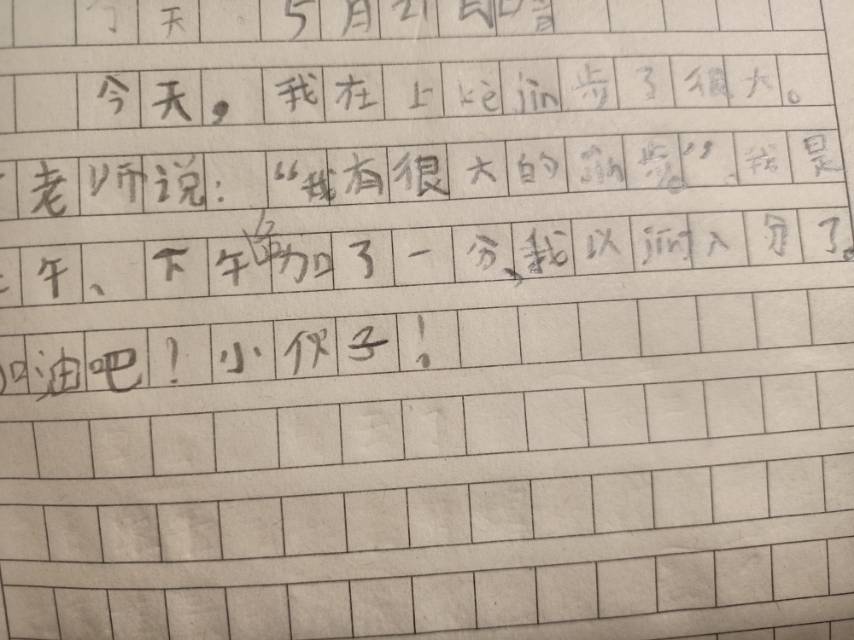 今天 5月21日
今天，我在上kè jìn步了很大。
老师说：“我有很大的jìn步。”我是
午、下午加了一分、我以jīng入分了。
加油吧！小伙子！